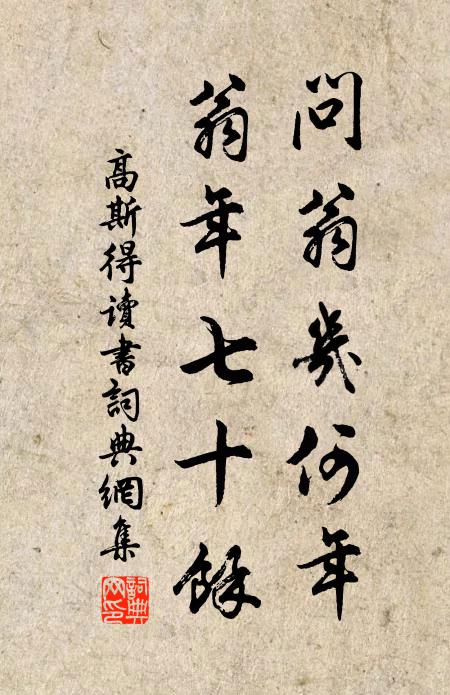 問翁幾何年
翁年七十餘
高斯得讀書詞典網集
詞典網印